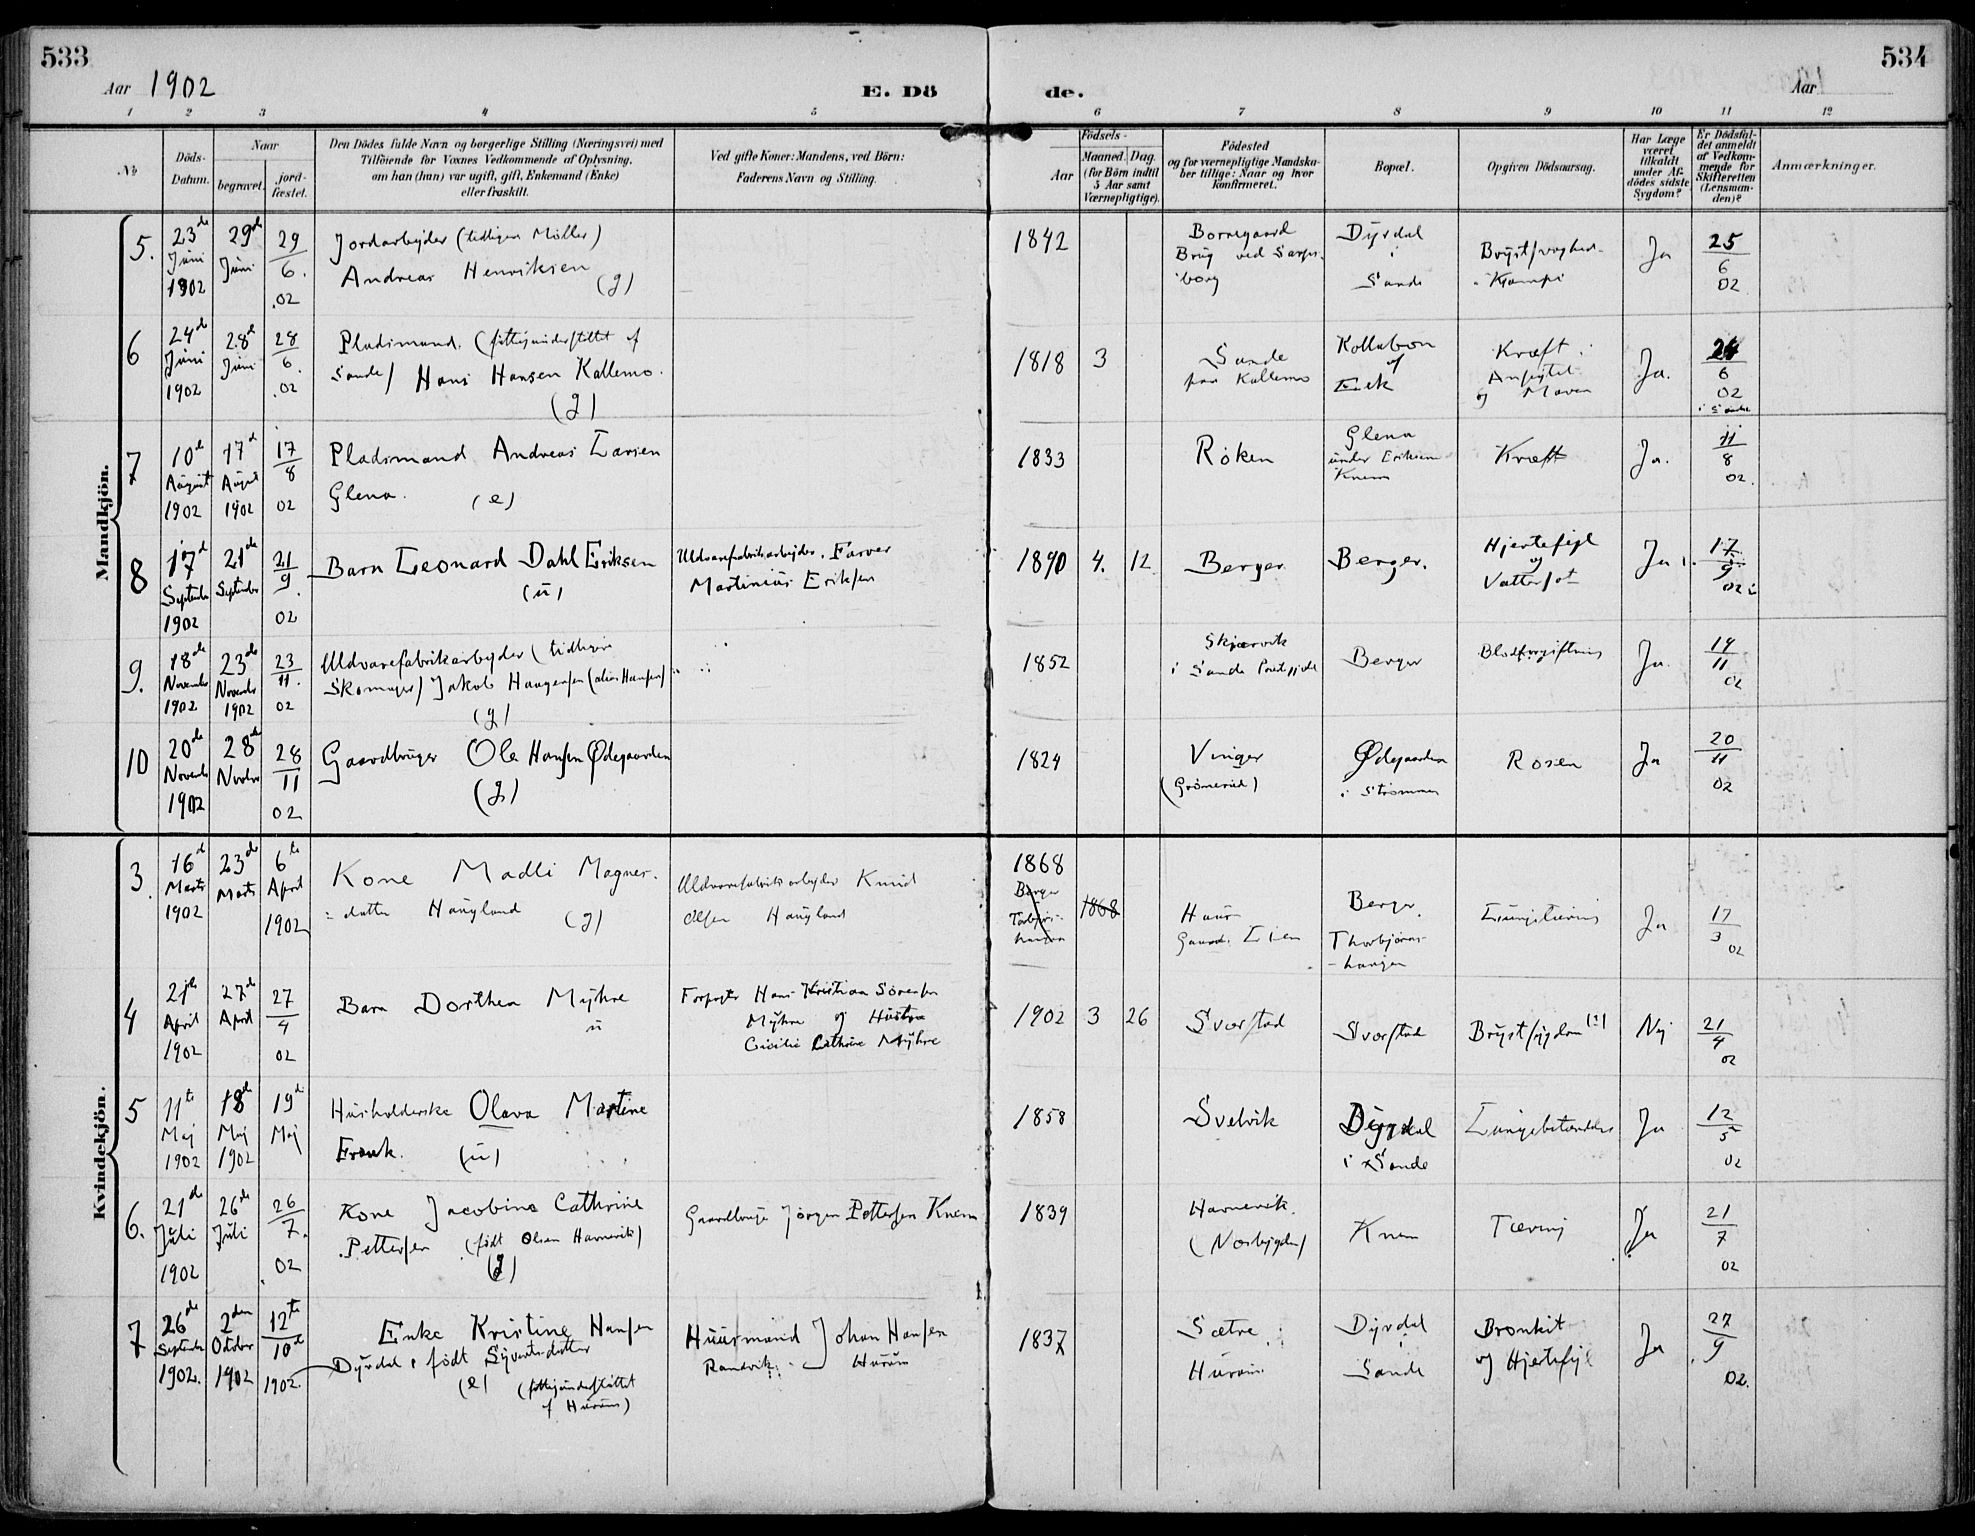 533
Aar 1902
E. Dö
1 2 3 4 5
№
Döds-
Datum.
Naar
begravet.
jord-
fæstet.
Den Dödes fulde Navn og borgerlige Stilling (Næringsvei) med
Tilföiende for Voxnes Vedkommende af Oplysning,
om han (hun) var ugift, gift, Enkemand (Enke)
eller fraskilt.
Ved gifte Koner: Mandens, ved Börn:
Faderens Navn og Stilling.
534
de.
Aar
6 7 8 9 10 11 12
Födsels-
Aar
Maaned. Dag.
(for Börn indtil
5 Aar samt
Værnepligtige).
Födested
og for værnepligtige Mandska-
ber tillige: Naar og hvor
konfirmeret.
Bopæl.
Opgiven Dödsaarsag.
Har Læge
været
tilkaldt
under Af-
dödes sidste
Sygdom?
Er Dödsfal-
det anmeldt
af Vedkom-
mende for
Skifteretten
(Lensman-
den)?
Anmærkninger.
Mandkjön.
5. 23de Juni 1902 29de Juni 29/6. 02
Jordarbeider (tidligere Möller)
Andreas Henriksen (g)
1842
Borregaard
Brug ved Sarps-
borg
Dyrdal
i
Sande
Ja
25/6 02
6 24de Juni 1902 28de Juni 28/6. 02
Pladsmand. (fattigunderstöttet af
Sande) Hans Hansen Kallemo.
(g)
1818 3
Sande
paa Kallemo
af
Eik
Kræft i
Ansigtet
og Maven
Ja.
24/6 02
i Sande
7 10de August 1902 17de August 1902 17/8 02
Pladsmand Andreas Larsen
Glena. (e)
1833
Röken
Glena
under Eriksen
Knem
Kræft
Ja.
11/8 02.
8 17de September 1902 21de September 21/9. 02
Barn Leonard Dahl Eriksen
(u)
Uldvarefabrikarbeider, Farver
Martinius Eriksen
1890 4. 12
Berger
Berger.
Hjertefejl
og
Vattersot
Ja.
17/9 02
9. 18de November 1902 23de November 1902 23/11. 02
Uldvarefabrikarbeider (tidligere
Skomager) Jakob Haagensen (alias Hansen)
(g)
1852
Skjærvik
i Sande
Berger
Blodforgiftning
Ja.
19/11 02
10 20de November 1902 28de November 28/11 02
Gaardbruger Ole Hansen Ødegaarden
(g)
1824
Vinger
Ødegaarden
i Strömmen
Rosen
Ja
20/11 02
Kvindekjön.
3. 16de Marts 1902 23de Marts 6te April 1902
Kone Madli Magnes-
datter Haugland (g)
Uldvarefabrikarbeider Knud
Olsen Haugland
1868
Berger
1868
Gaard. Lien
Berger.
Thorbjörns-
haugen
Ja
17/3 02
4 21de April 1902 27de April 27/4 02
Barn Dorthea Myhre
u
Forpagter Hans Kristian Sörensen
Myhre og Hustru
Cicilie Cathrine Myhre
1902 3 26
Svarstad
Svarstad
Brystsygdom (?)
Nej
21/4 02
5 11te Maj 1902 18de Maj 1902 19de Maj
Husholderske Olava Martine
Frank. (u)
1858
Svelvik
Dyrdal
i Sande
Lungebetændelse
Ja
12/5 02
6. 21de Juli 1902 26de Juli 26/7. 02
Kone Jacobine Cathrine
Pettersen (födt Olsen Havnevik)
(g)
Gaardbruger Jörgen Pettersen Knem
1839
Havnevik.
Knem
Tæring
Ja
21/7 02
7 26de September 1902. 2den October 1902 12te/10de 1902.
Enke Kristine Hansen
Dyrdal, födt Syvertsdatter
(e) (fattigunderstöttet
af Hurum)
Husmand Johan Hansen
Ramvik, Hurum
1837
Sætre i
Hurum
Dyrdal
i
Sande
Bronkit
og Hjertefejl
Ja
27/9 02.